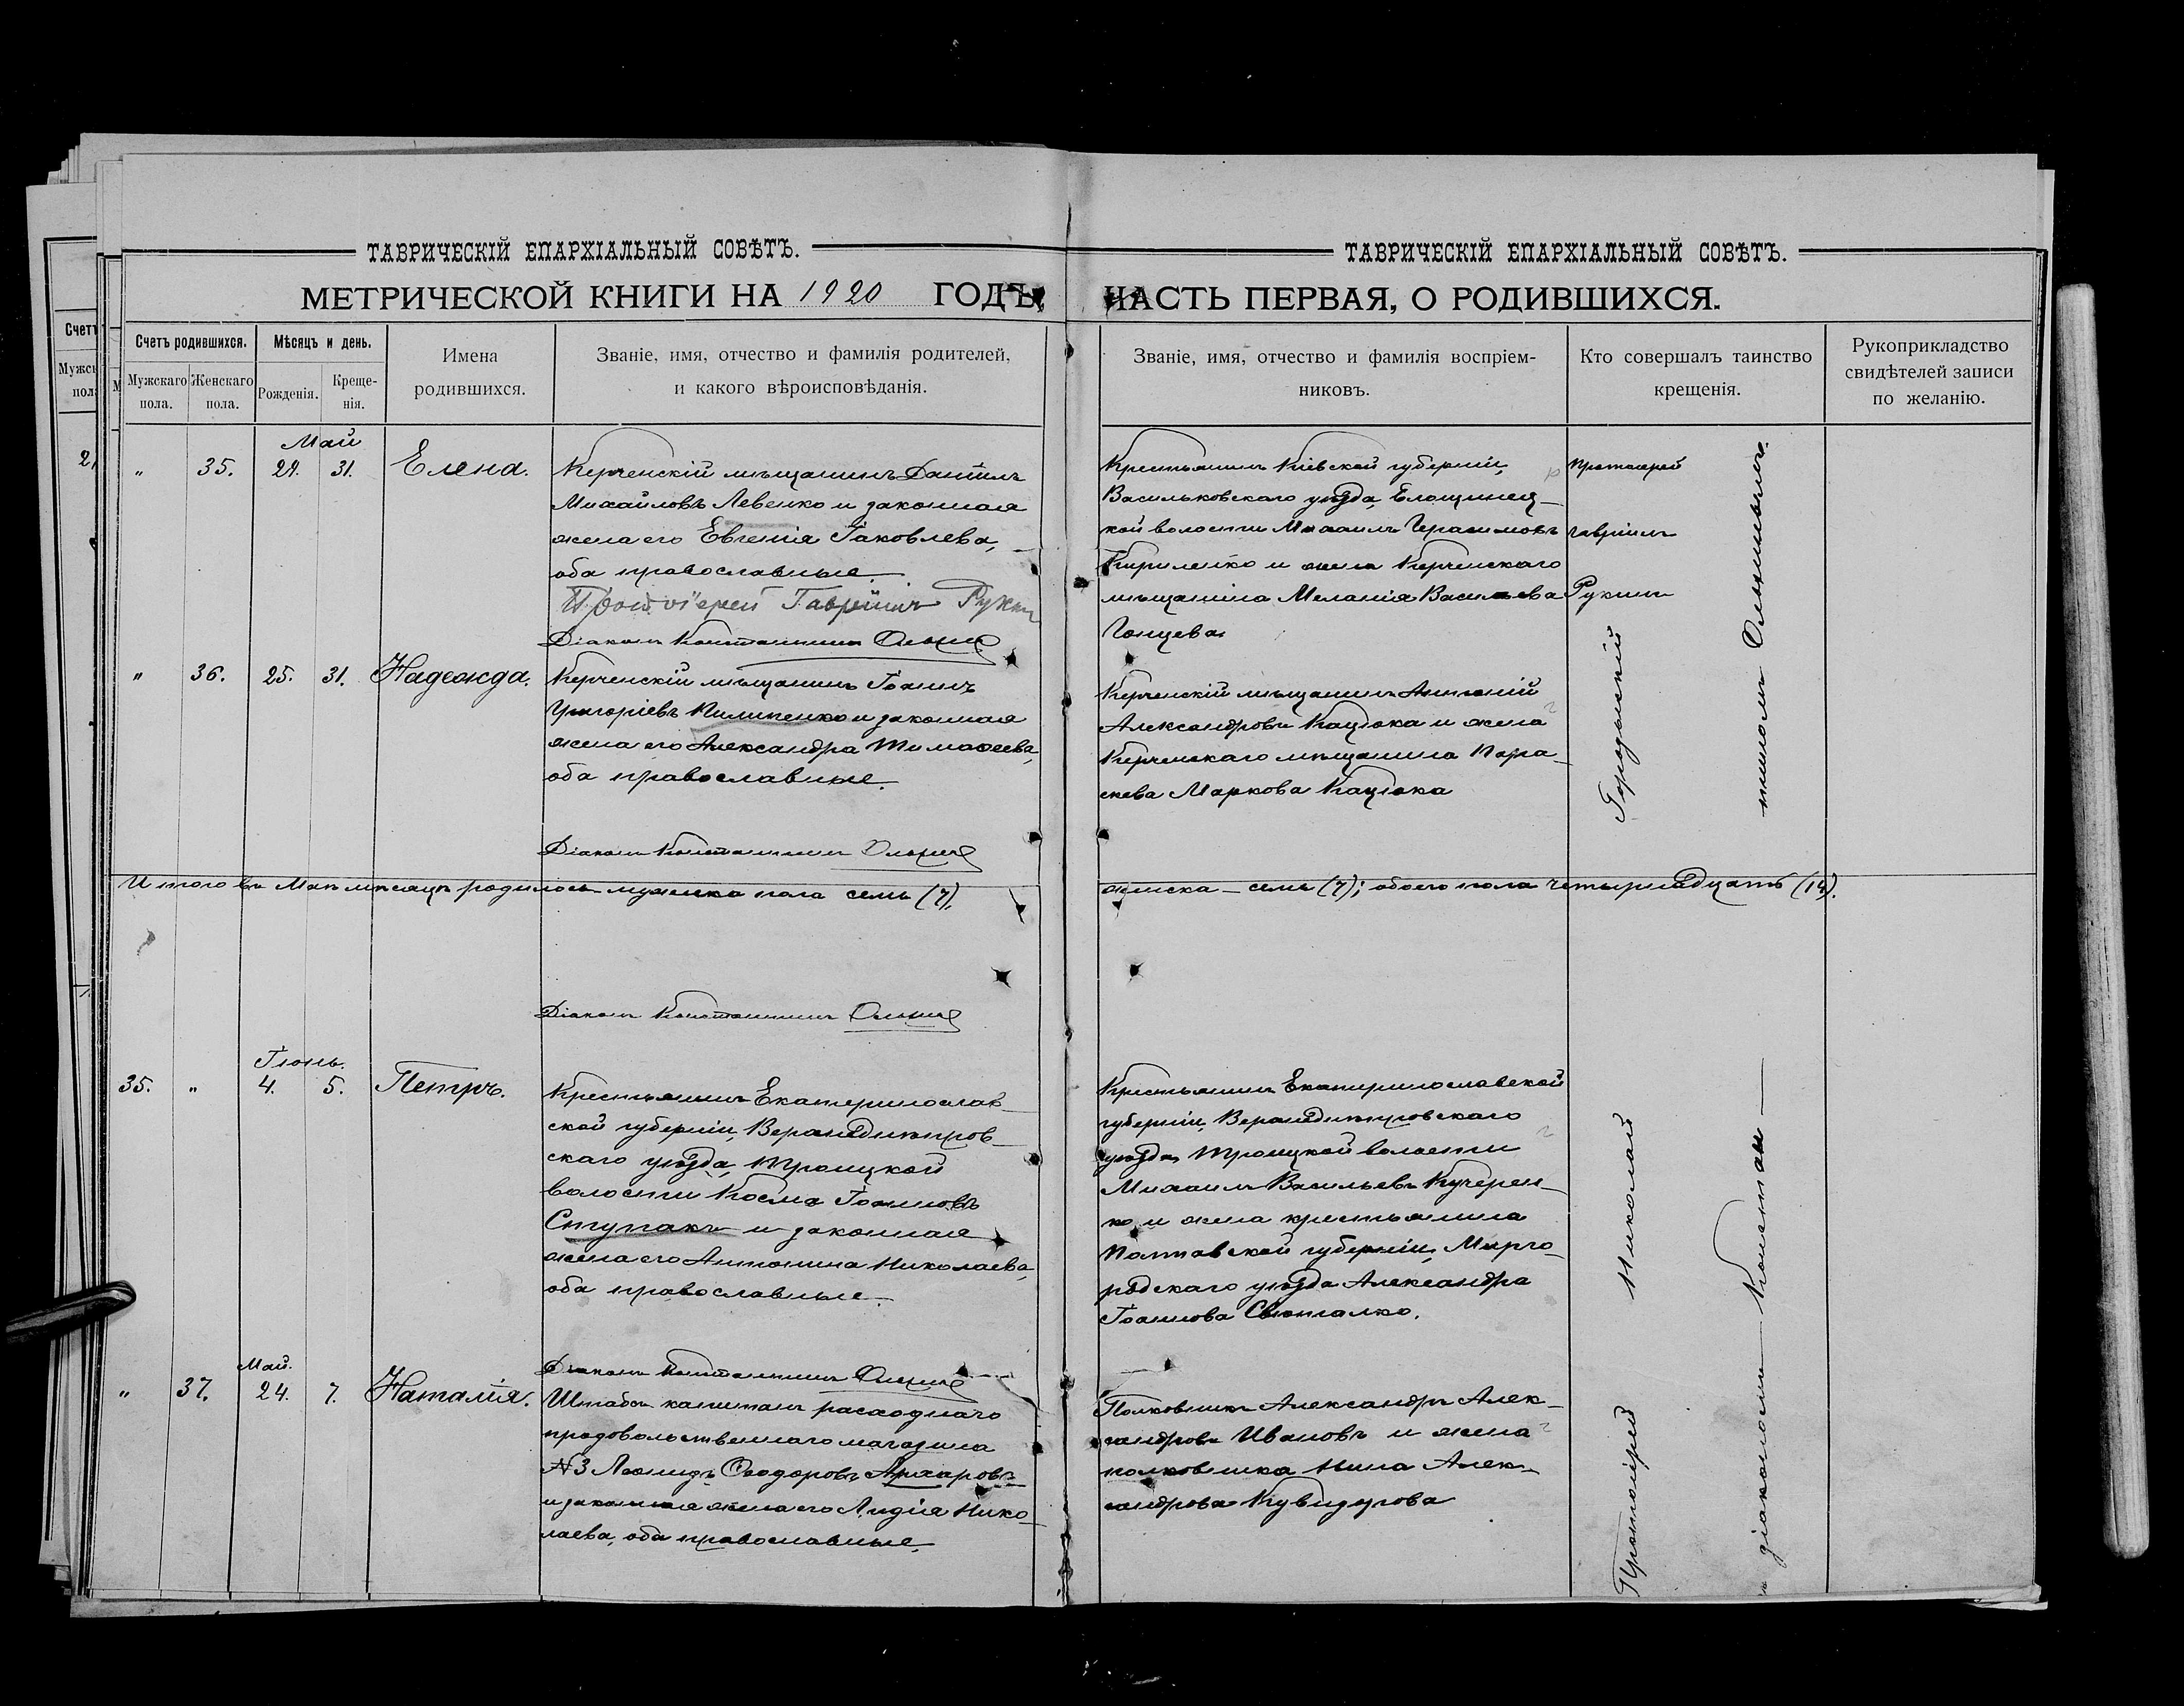 ТАВРИЧЕСКІЙ ЕПАРХІАЛЬНЫЙ СОВѢТЪ.
МЕТРИЧЕСКОЙ КНИГИ НА 1920 ГОДЪ,
Счетъ родившихся.
Мѣсяцъ и день.
Имена
родившихся.
Званіе, имя, отчество и фамилія родителей,
и какого вѣроисповѣданія.
Мужскаго
пола.
Женскаго
пола.
Рожденія.
Креще-
нія.
Май
" 35. 29. 31. Елена.
Керченскій мѣщанинъ Даніилъ
Михайловъ Левенко и законная
жена его Евгенія Іаковлева,
оба православные.
Протоіерей Гавріилъ Рукинъ
Діаконъ Константинъ
" 36. 25. 31. Надежда.
Керченскій мѣщанинъ Іоаннъ
Григоріевъ Пилипенко и законная
жена его Александра Тимоѳеева,
оба православные.
Діаконъ Константинъ
Итого въ Маѣ мѣсяцѣ родилось мужска пола семь (7),
Діаконъ Константинъ
Іюнь.
35. " 4. 5. Петръ.
Крестьянинъ Екатеринослав-
ской губерніи, Верхнеднѣпров-
скаго уѣзда, Троицкой
волости Косма Іоанновъ
Ступакъ и законная
жена его Антонина Николаева,
оба православные.
Діаконъ Константинъ
Май.
" 37. 24. 7. Наталія.
Штабсъ капитанъ расходнаго
продовольственнаго магазина
№3 Леонидъ Ѳеодоровъ Архаровъ
и законная жена его Лидія Нико-
лаева, оба православные.
ТАВРИЧЕСКІЙ ЕПАРХІАЛЬНЫЙ СОВѢТЪ.
ЧАСТЬ ПЕРВАЯ, О РОДИВШИХСЯ.
Званіе, имя, отчество и фамилія воспріем-
никовъ.
Кто совершалъ таинство
крещенія.
Рукоприкладство
свидѣтелей записи
по желанію.
Крестьянинъ Кіевской губерніи,
Васильковскаго уѣзда,
кой волости Михаилъ Герасимовъ
Кириленко и жена Керченскаго
мѣщанина Меланія Васильева
Гонцева
Протоіерей
Гавріилъ
Рукинъ
Керченскій мѣщанинъ Антоній
Александровъ Кацюка и жена
Керченскаго мѣщанина Пара-
скева Маркова Кацюка
женска - семь (7); обоего пола четырнадцать (14).
Крестьянинъ Екатеринославской
губерніи, Верхнеднѣпровскаго
уѣзда, Троицкой волости
Михаилъ Васильевъ Кучерен-
ко и жена крестьянина
Полтавской губерніи, Мирго-
родскаго уѣзда Александра
Іоаннова
Полковникъ Александръ Алек-
сандровъ Ивановъ и жена
полковника Нина Алек-
сандрова
Протоіерей Николай
съ діакономъ